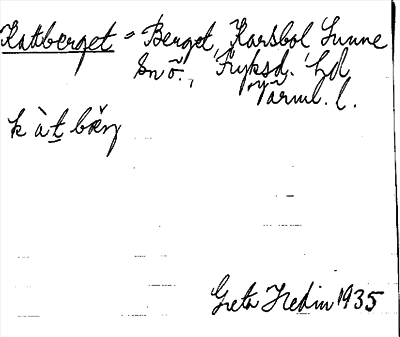 Kattberget = Berget, Karsbol Sunne
sn ö., Fryksd. hd
Värml. l.
k à t bærj
Greta Hedin 1935